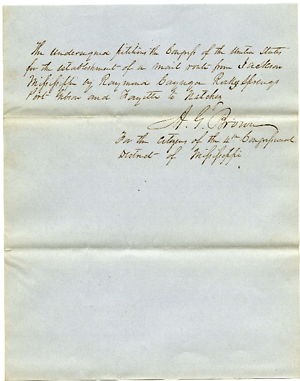 The undersigned petitions the Congress of the United States
for the establishment of a mail route from Jackson
Mississippi by Raymond Cayuga Rocky Springs
Port Gibson and Fayette to Natchez
A. G. Brown
For the citizens of the 4th Congressional
District of Mississippi